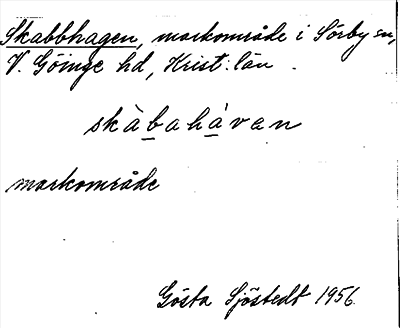 Skabbhagen, markområde i Sörby sn,
V. Göinge hd, Krist. län.
skàbahàven
markområde
Gösta Sjöstedt 1956.